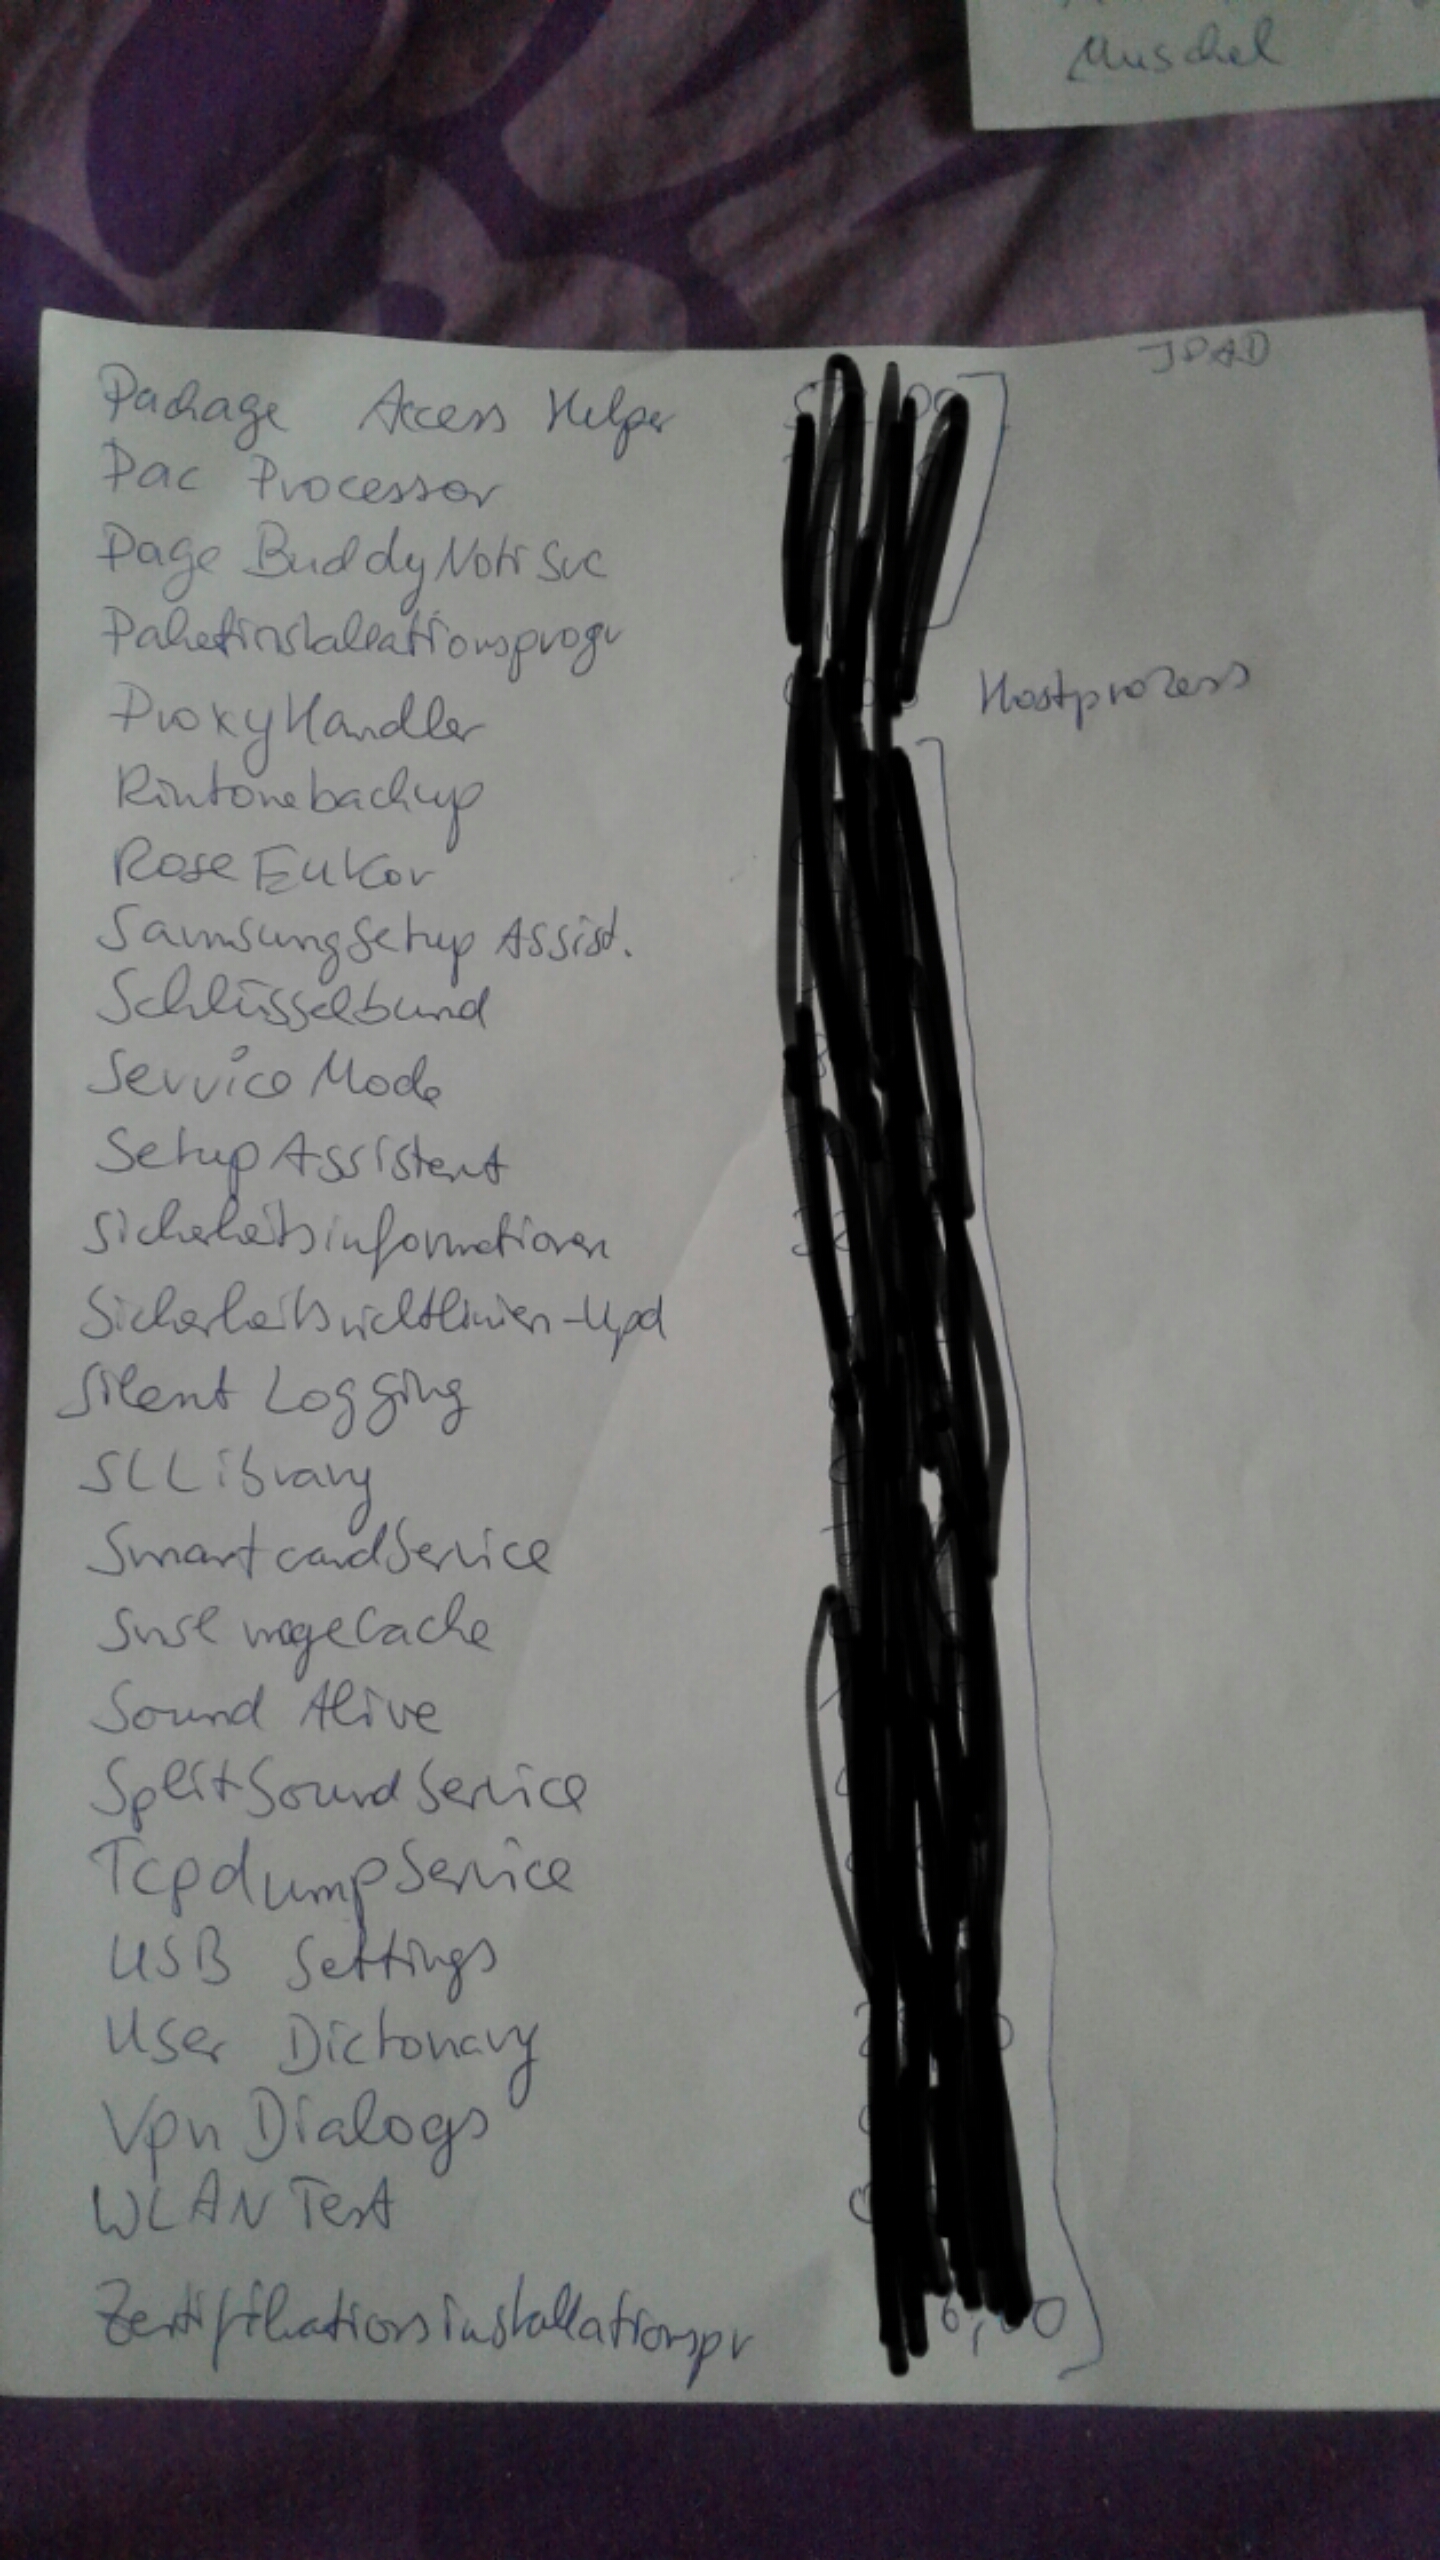 Muschel
IPAD
Package Access Helper
Pac Processor
Page Buddy Noti Svc
Paketinstallationsprogr
Hostprozess
ProxyHandler
Rintonebackup
Rose EUKor
Samsungsetup Assist.
Schlüsselbund
Service Mode
Setup Assistent
Sicherheitsinformationen
Sicherheitsrichtlinien-Upd
Silent Logging
SLLibrary
SmartcardService
Cache
Sound Alive
SplitSoundService
TcpdumpService
USB Settings
User Dictonary
Vpn Dialogs
WLAN Test
Zertifikationsinstallationspr